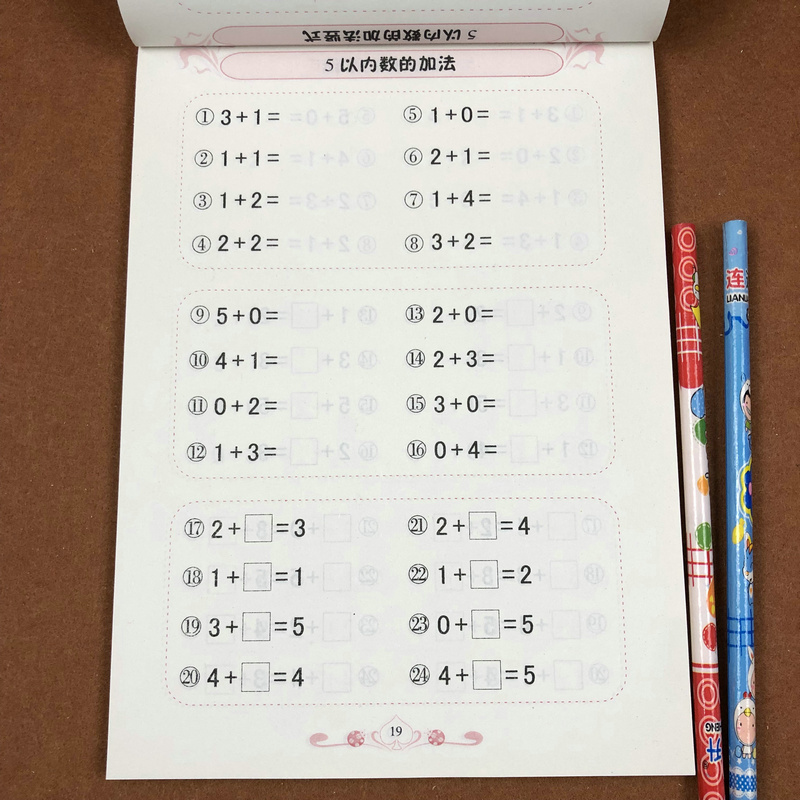 5 以内数的加法竖式
5 以内数的加法
① 3+1=
② 1+1=
③ 1+2=
④ 2+2=
⑤ 1+0=
⑥ 2+1=
⑦ 1+4=
⑧ 3+2=
⑨ 5+0=
⑩ 4+1=
⑪ 0+2=
⑫ 1+3=
⑬ 2+0=
⑭ 2+3=
⑮ 3+0=
⑯ 0+4=
⑰ 2+□=3
⑱ 1+□=1
⑲ 3+□=5
⑳ 4+□=4
㉑ 2+□=4
㉒ 1+□=2
㉓ 0+□=5
㉔ 4+□=5
19
连
LIAN
升